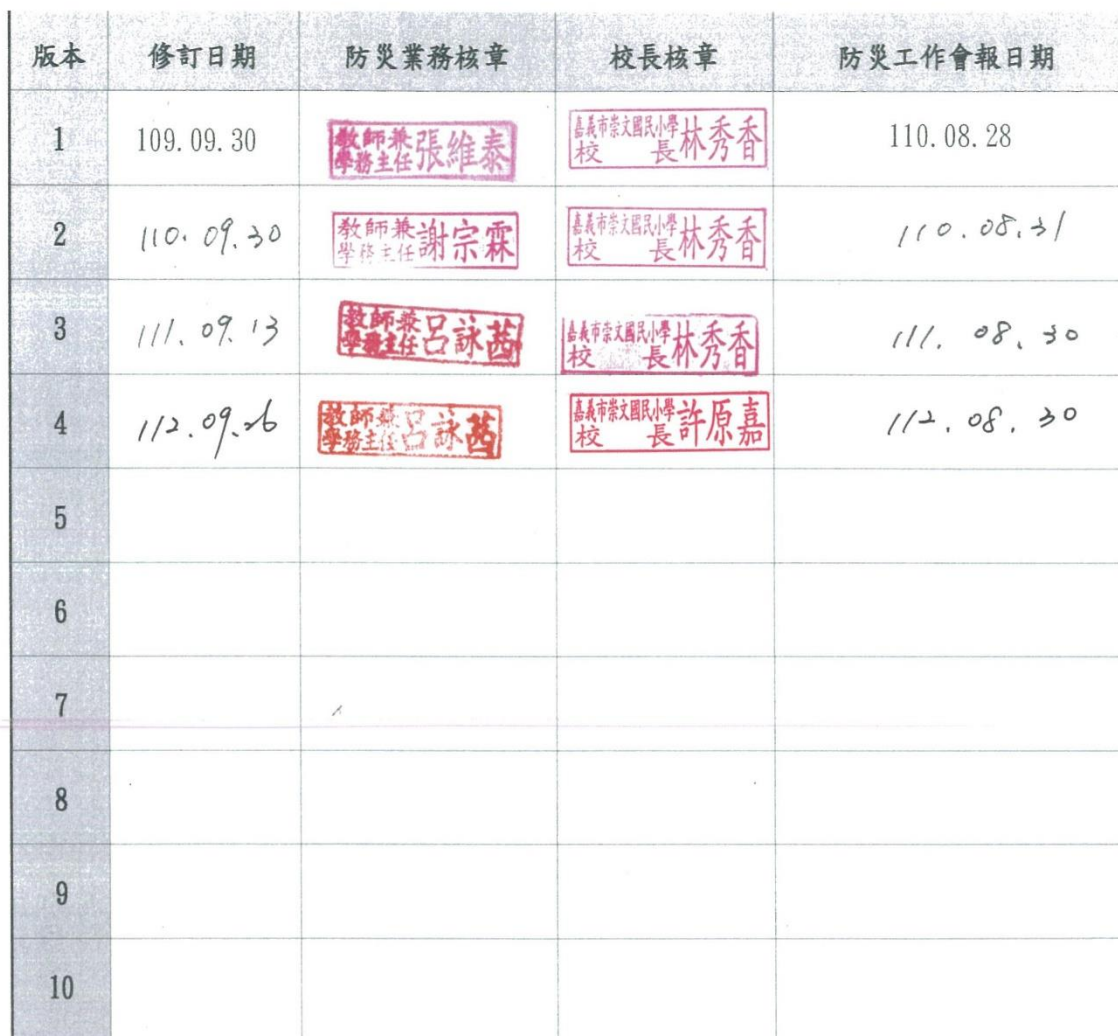 版本 修訂日期 防災業務核章 校長核章 防災工作會報日期
1 109.09.30 教師兼學務主任張維泰 嘉義市崇文國民小學校長林秀香 110.08.28
2 110.09.30 教師兼學務主任謝宗霖 嘉義市崇文國民小學校長林秀香 110.08.31
3 111.09.13 教師兼學務主任呂詠茜 嘉義市崇文國民小學校長林秀香 111.08.30
4 112.09.26 教師兼學務主任呂詠茜 嘉義市崇文國民小學校長許原嘉 112.08.30
5
6
7
8
9
10